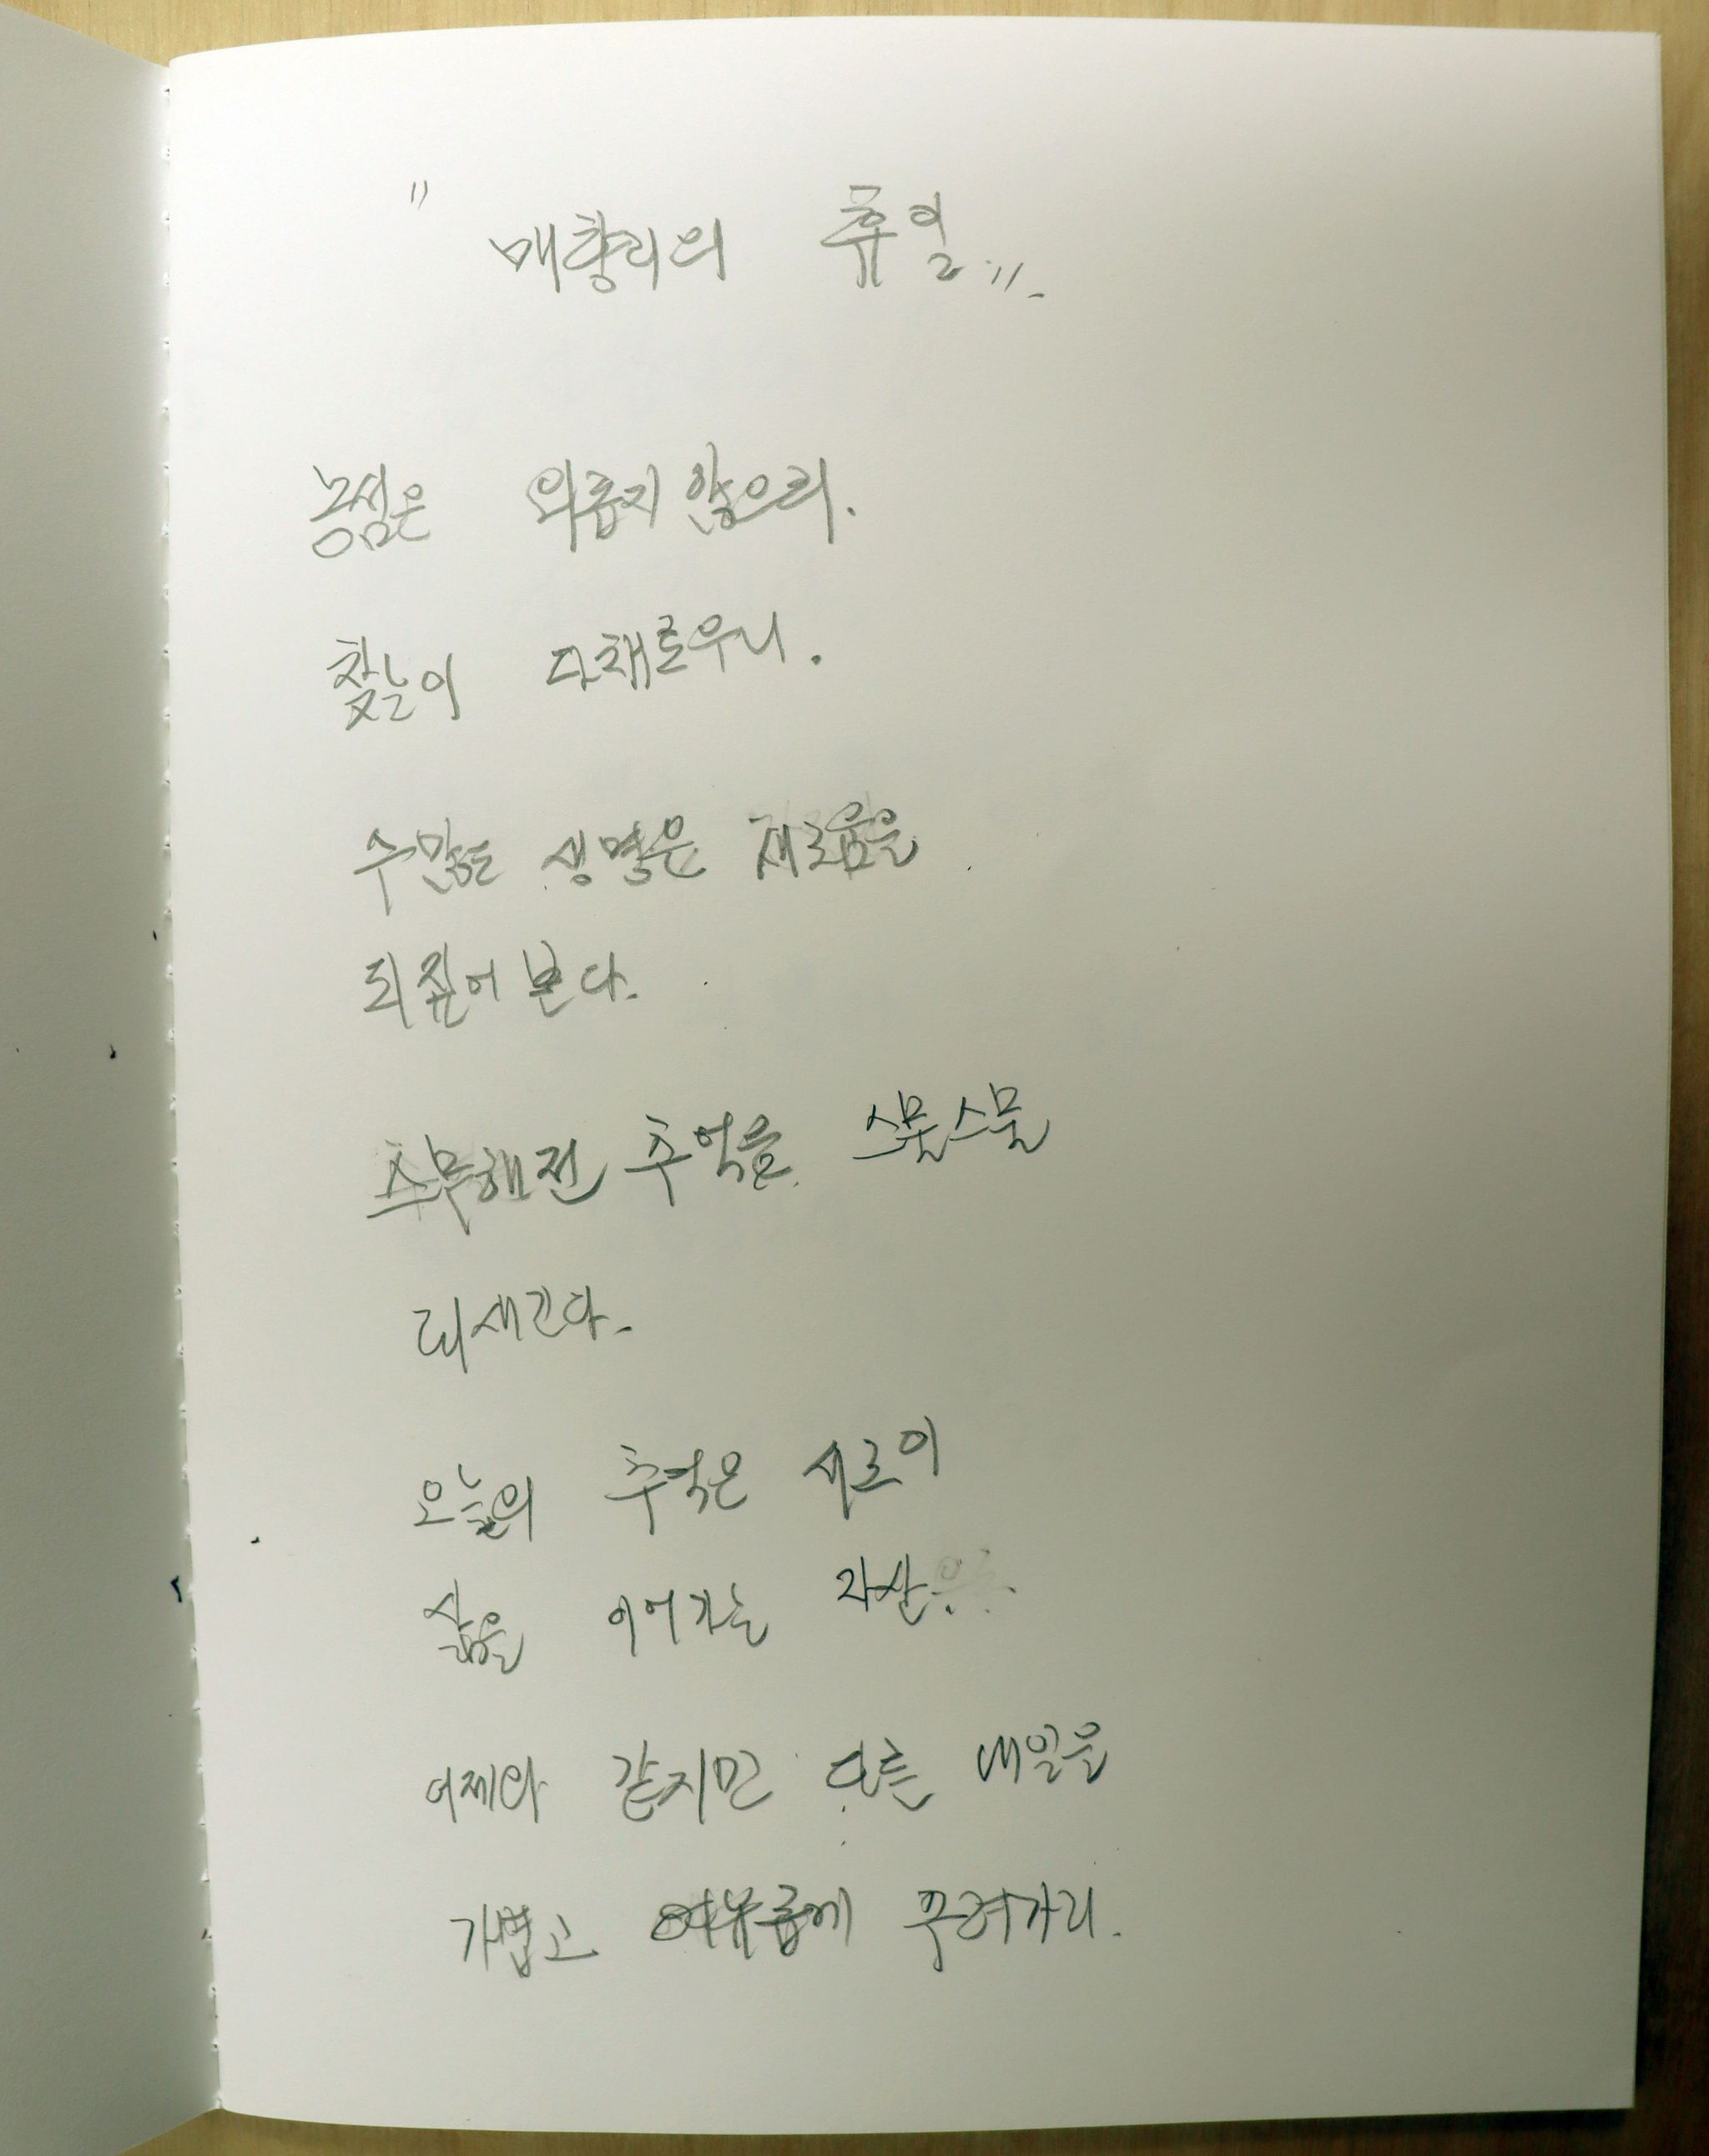 "매향리의 휴일".
농섬은 외롭지 않으리.
찾는이 다채로우니.
수많은 생명은 새로움을
되짚어 본다.
추억을 스물스물
되새긴다.
오늘의 추억은 새로이
삶을 이어가는 자산.
어제와 같지만 다른 내일을
가볍고 여유롭게 꾸려가리.